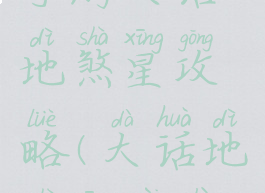 dì shà xīng gōng
地煞星攻
lüè dà huà dì
略(大话地